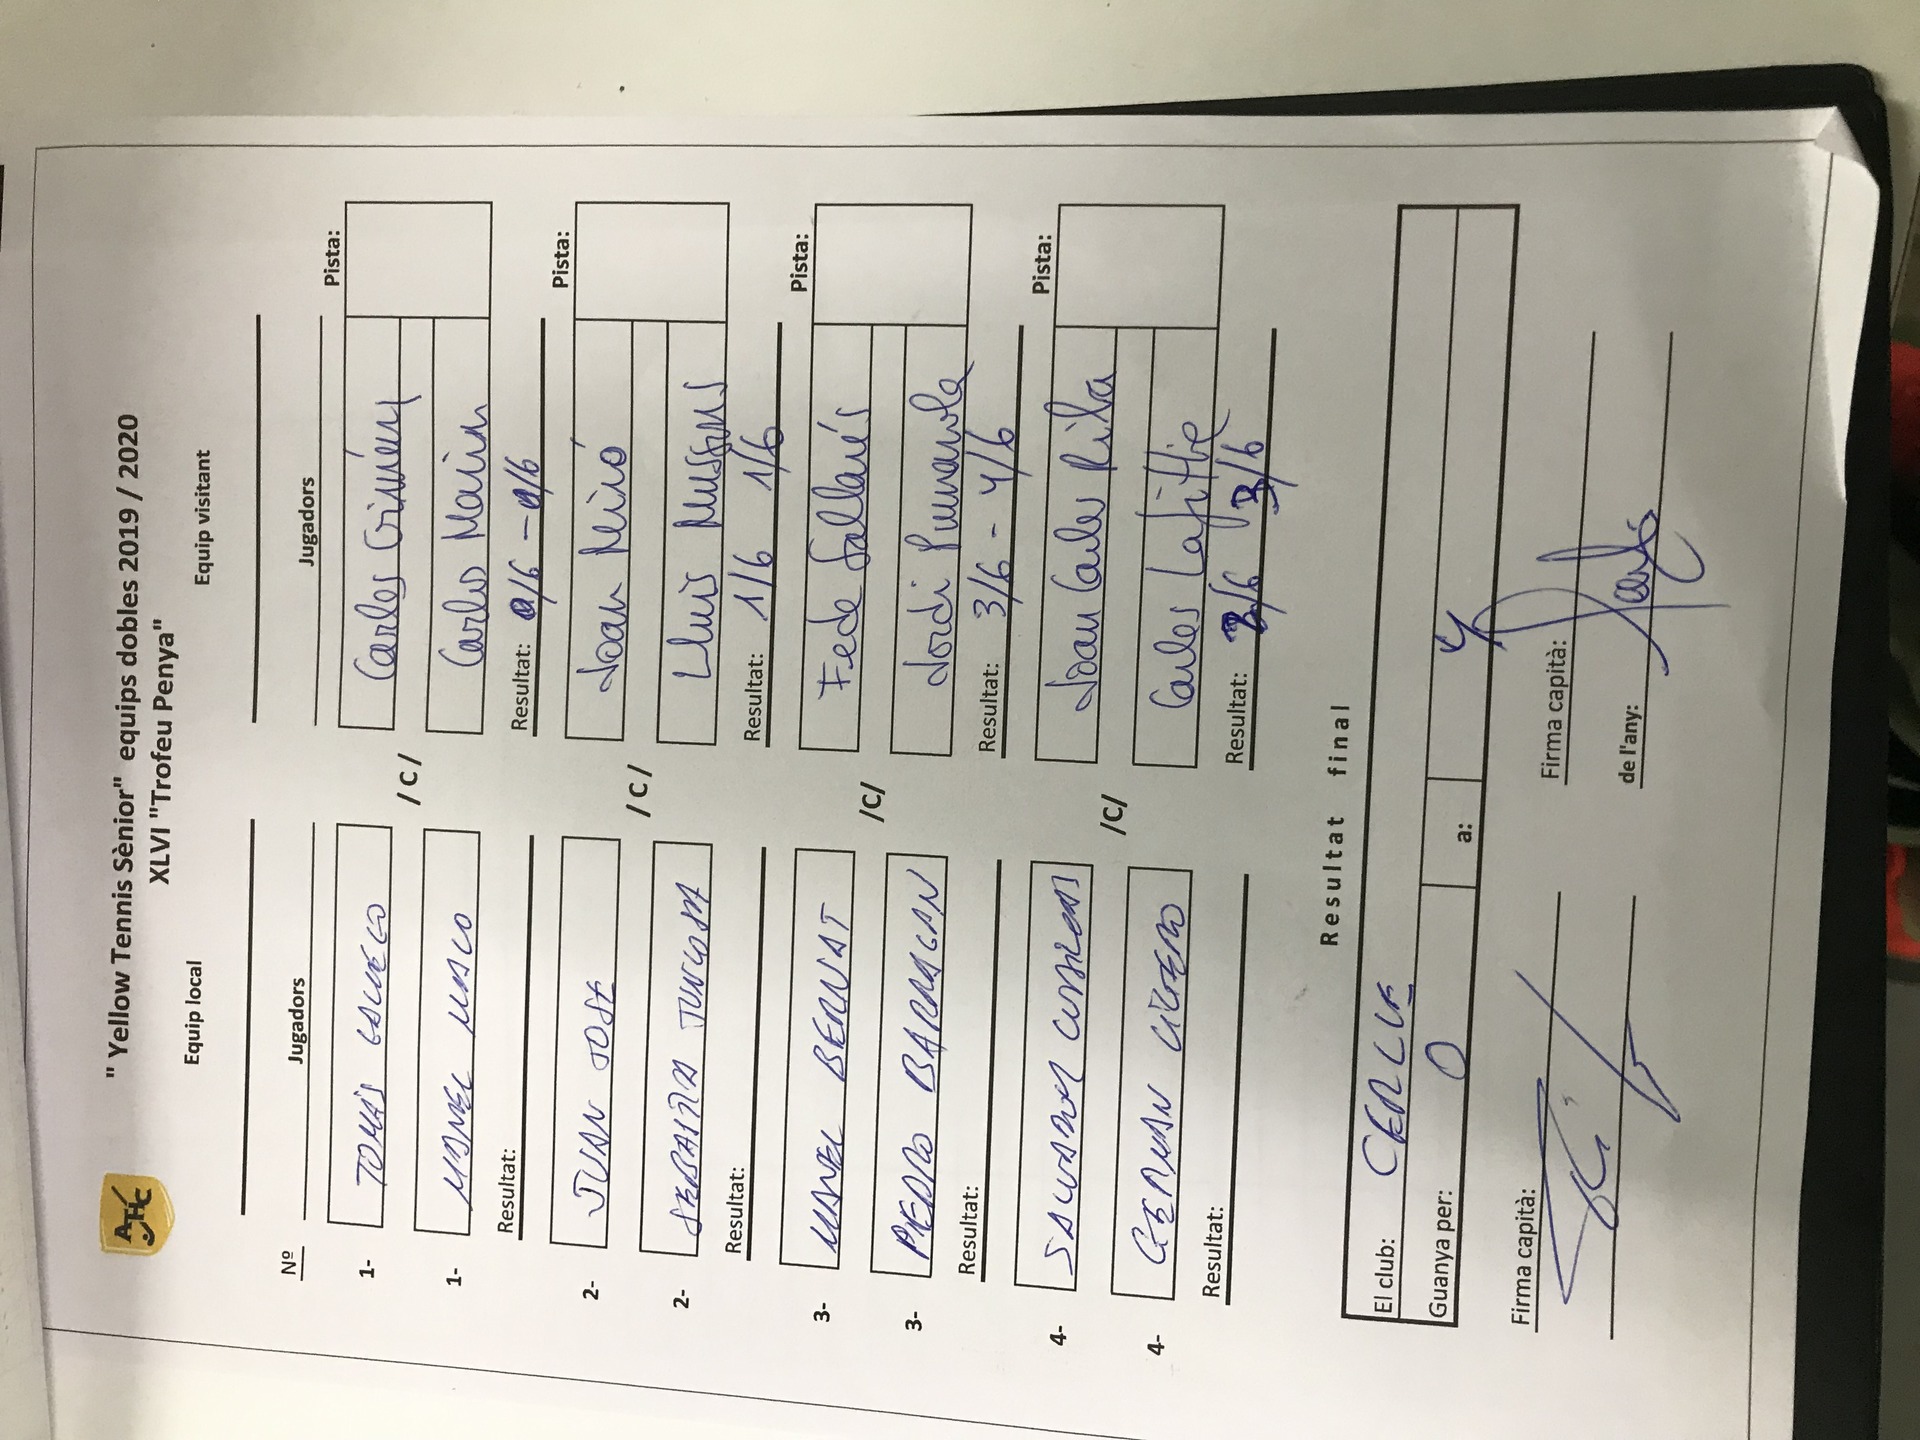 " Yellow Tennis Sènior" equips dobles 2019 / 2020
XLVI "Trofeu Penya"
Equip local Equip visitant
Nº Jugadors Jugadors Pista:
1- TOMÁS Carles
/C/
1- MANEL Carlos Marin
Resultat: Resultat: 0/6 - 0/6
Pista:
2- JUAN JOSE Joan Miró
/C/
2- Lluis
Resultat: Resultat: 1/6 1/6
Pista:
3- MANEL BERNAT Fede Sallarés
/C/
3- PIEDRO BARRAGAN Jordi Pumarola
Resultat: Resultat: 3/6 - 4/6
Pista:
4- SALVADOR Joan Carles Rila
/C/
4- GERMAN Carles Lafitte
Resultat: Resultat: 3/6 3/6
Resultat final
El club: CERCLE
Guanya per: 0 a: 4
Firma capità: Firma capità:
de l'any: